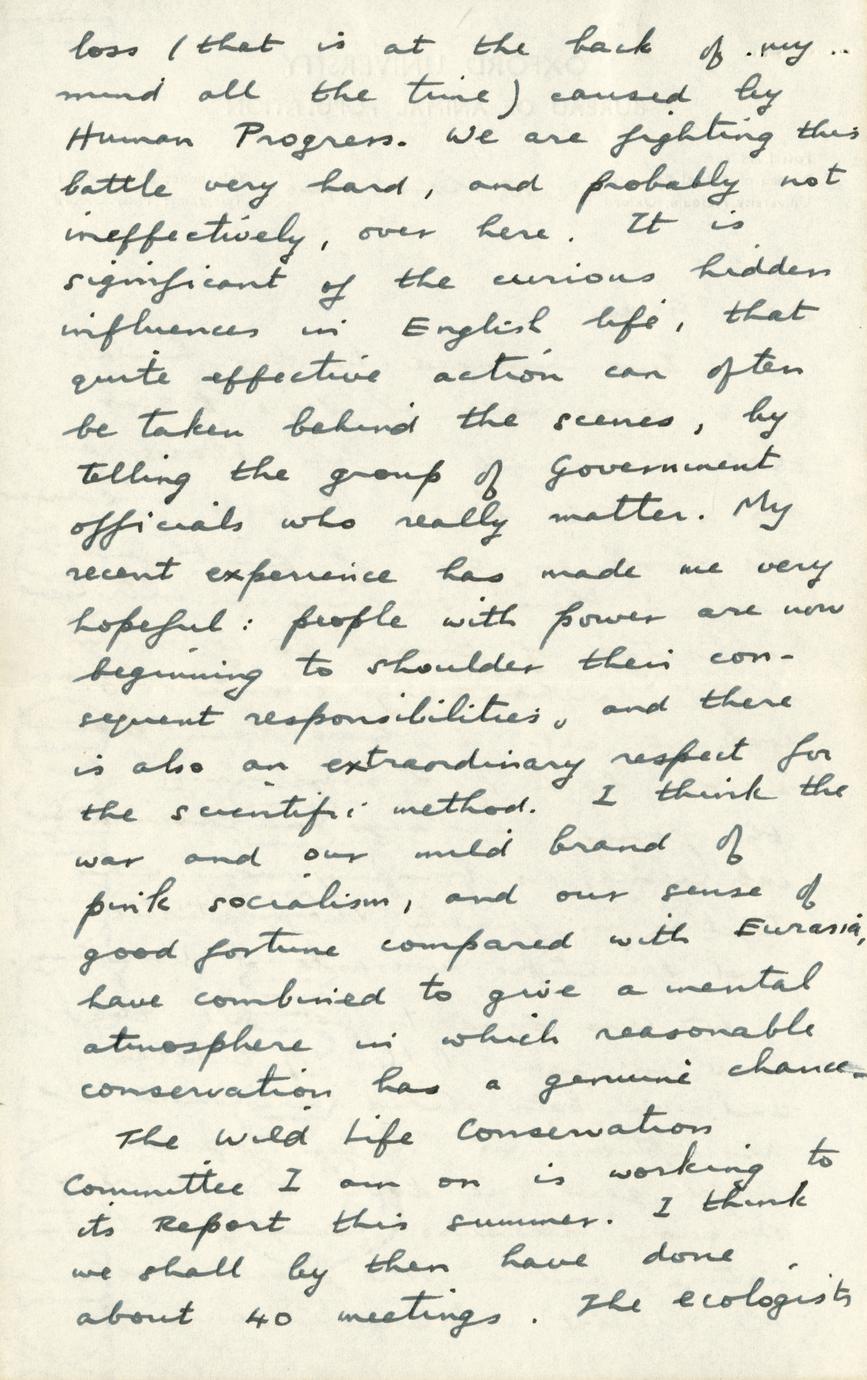 loss (that is at the back of my
mind all the time) caused by
Human Progress. We are fighting this
battle very hard, and probably not
ineffectively, over here. It is
significant of the curious hidden
influences in English life, that
quite effective action can often
be taken behind the scenes, by
telling the group of Government
officials who really matter. My
recent experience has made me very
hopeful: people with power are now
beginning to shoulder their con-
sequent responsibilities, and there
is also an extraordinary respect for
the scientific method. I think the
war and our mild brand of
pink socialism, and our sense of
good fortune compared with Eurasia,
have combined to give a mental
atmosphere in which reasonable
conservation has a genuine chance.
The Wild Life Conservation
Committee I am on is working to
its Report this summer. I think
we shall by then have done
about 40 meetings. The ecologists